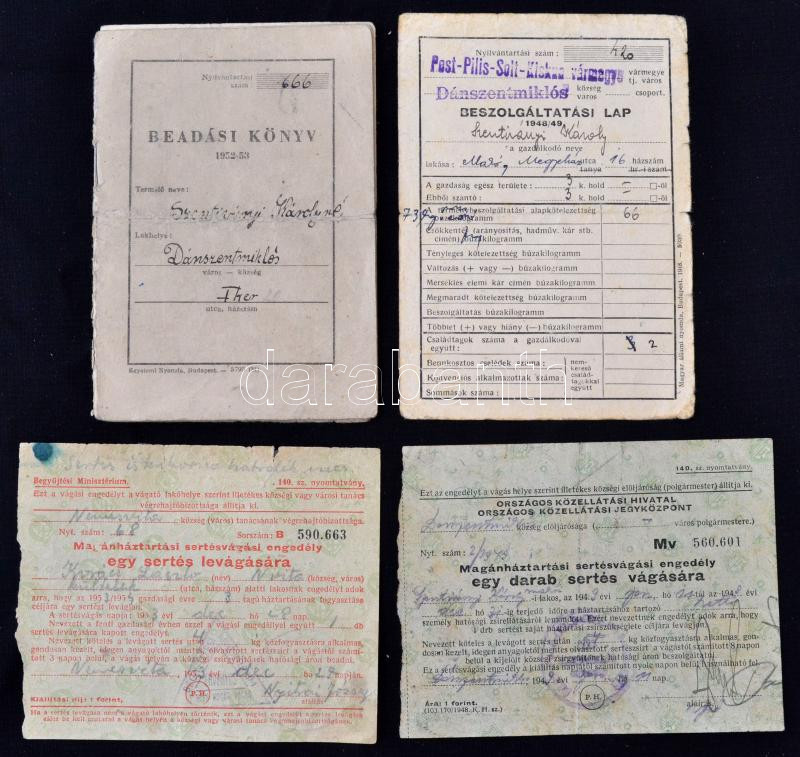 Nyilvántartási
szám: 666
BEADÁSI KÖNYV
1952-53
Termelő neve:
Szentiványi Károlyné
Lakhelye:
Dánszentmiklós
város — község
I ker
utca, házszám
Egyetemi Nyomda, Budapest. —
Nyilvántartási szám: 420
Pest-Pilis-Solt-Kiskun vármegye vármegye
tj. város
Dánszentmiklós község
város csoport.
BESZOLGÁLTATÁSI LAP
1948/49
Szentiványi Károly
a gazdálkodó neve
lakása: utca 16 házszám
tanya hr. i szám
A gazdaság egész területe: 3 k. hold — □-öl
Ebből szántó: 3 k. hold □-öl
beszolgáltatási alapkötelezettség 66
búzakilogramm
Csökkentés (arányosítás, hadműv. kár stb.
címén) búzakilogramm
Tényleges kötelezettség búzakilogramm
Változás (+ vagy —) búzakilogramm
Mérséklés elemi kár címén búzakilogramm
Megmaradt kötelezettség búzakilogramm
Beszolgáltatás búzakilogramm
Többlet (+) vagy hiány (—) búzakilogramm
Családtagok száma a gazdálkodóval
együtt: 2
Bennkosztos cselédek száma:
Konvenciós alkalmazottak száma:
Sommások száma:
nem-
kereső
család-
tagokkal
együtt
Magyar állami nyomda, Budapest, 1948. —
darabanth
Begyűjtési Minisztérium. 140. sz. nyomtatvány.
Ezt a vágási engedélyt a vágató lakóhelye szerint illetékes községi vagy városi tanács
végrehajtóbizottsága állítja ki.
Nemesvita község (város) tanácsának végrehajtóbizottsága.
Nyt. szám: 68 Sorszám: B 590.663
Magánháztartási sertésvágási engedély
egy sertés levágására
Kovács László (név) Vita (község, város)
utca, házszám) alatti lakosnak engedélyt adok
arra, hogy az 1953/1954 gazdasági évre 3 tagú háztartásának fogyasztása
céljára egy sertést levágjon.
A sertésvágás napja: 1953 dec hó 28 n
Nevezett a fenti gazdasági évben
sertés vágására kapott engedélyt.
Nevezett köteles a levágott sertés után kg közfogyasztásra alkalmas,
gondosan kezelt, idegen anyagoktól mentes olvasztott sertészsírt a vágástól számított
3 napon belül, a vágás helyén a községi zsírbegyűjtőnek hatósági áron beadni.
Nemesvita, 1953 dec hó 28 nap.
P. H.
Kiállítási díj: 1 forint. aláírás
Ha a sertés levágása nem a vágató lakóhelyén történik, ezt a vágási engedélyt a sertés levágása
előtt be kell mutatni a vágás helye szerint illetékes községi vagy városi tanács végrehajtóbizottságánál.
140. sz. nyomtatvány.
Ezt az engedélyt a vágás helye szerint illetékes községi elöljáróság (polgármester) állítja ki.
ORSZÁGOS KÖZELLÁTÁSI HIVATAL
ORSZÁGOS KÖZELLÁTÁSI JEGYKÖZPONT
község elöljárósága ( város polgármestere.)
Nyt. szám: Mv 560.601
Magánháztartási sertésvágási engedély
egy darab sertés vágására
i lakos, az 194 évi hó 194 évi
hó ig terjedő időre a háztartásához tartozó
személy hatósági zsírellátásáról lemondott. Ezért nevezettnek engedélyt adok arra, hogy
1 drb sertést saját háztartási zsírszükséglete céljára levágjon.
Nevezett köteles a levágott sertés után kg közfogyasztásra alkalmas, gon-
dosan kezelt, idegen anyagoktól mentes olvasztott sertészsírt a vágástól számított 8 napon
belül a kijelölt községi zsírgyűjtőnek hatósági áron beszolgáltatni.
Ez a sertésvágási engedély a kiállítástól számított nyolc napon belül használható fel.
194 hó 11 nap.
P. H.
Ára: 1 forint aláírás
(103.170/1948. K. H. sz.)